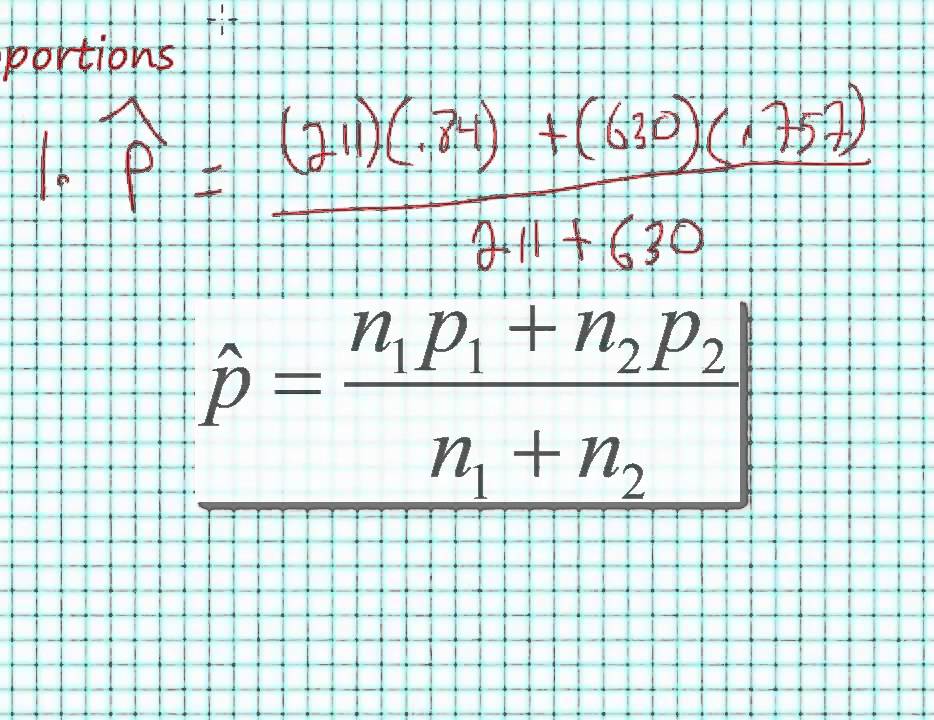 portions
1. p̂ = (211)(.84) + (630)(.757)
211 + 630
p̂ = n₁p₁ + n₂p₂
n₁ + n₂